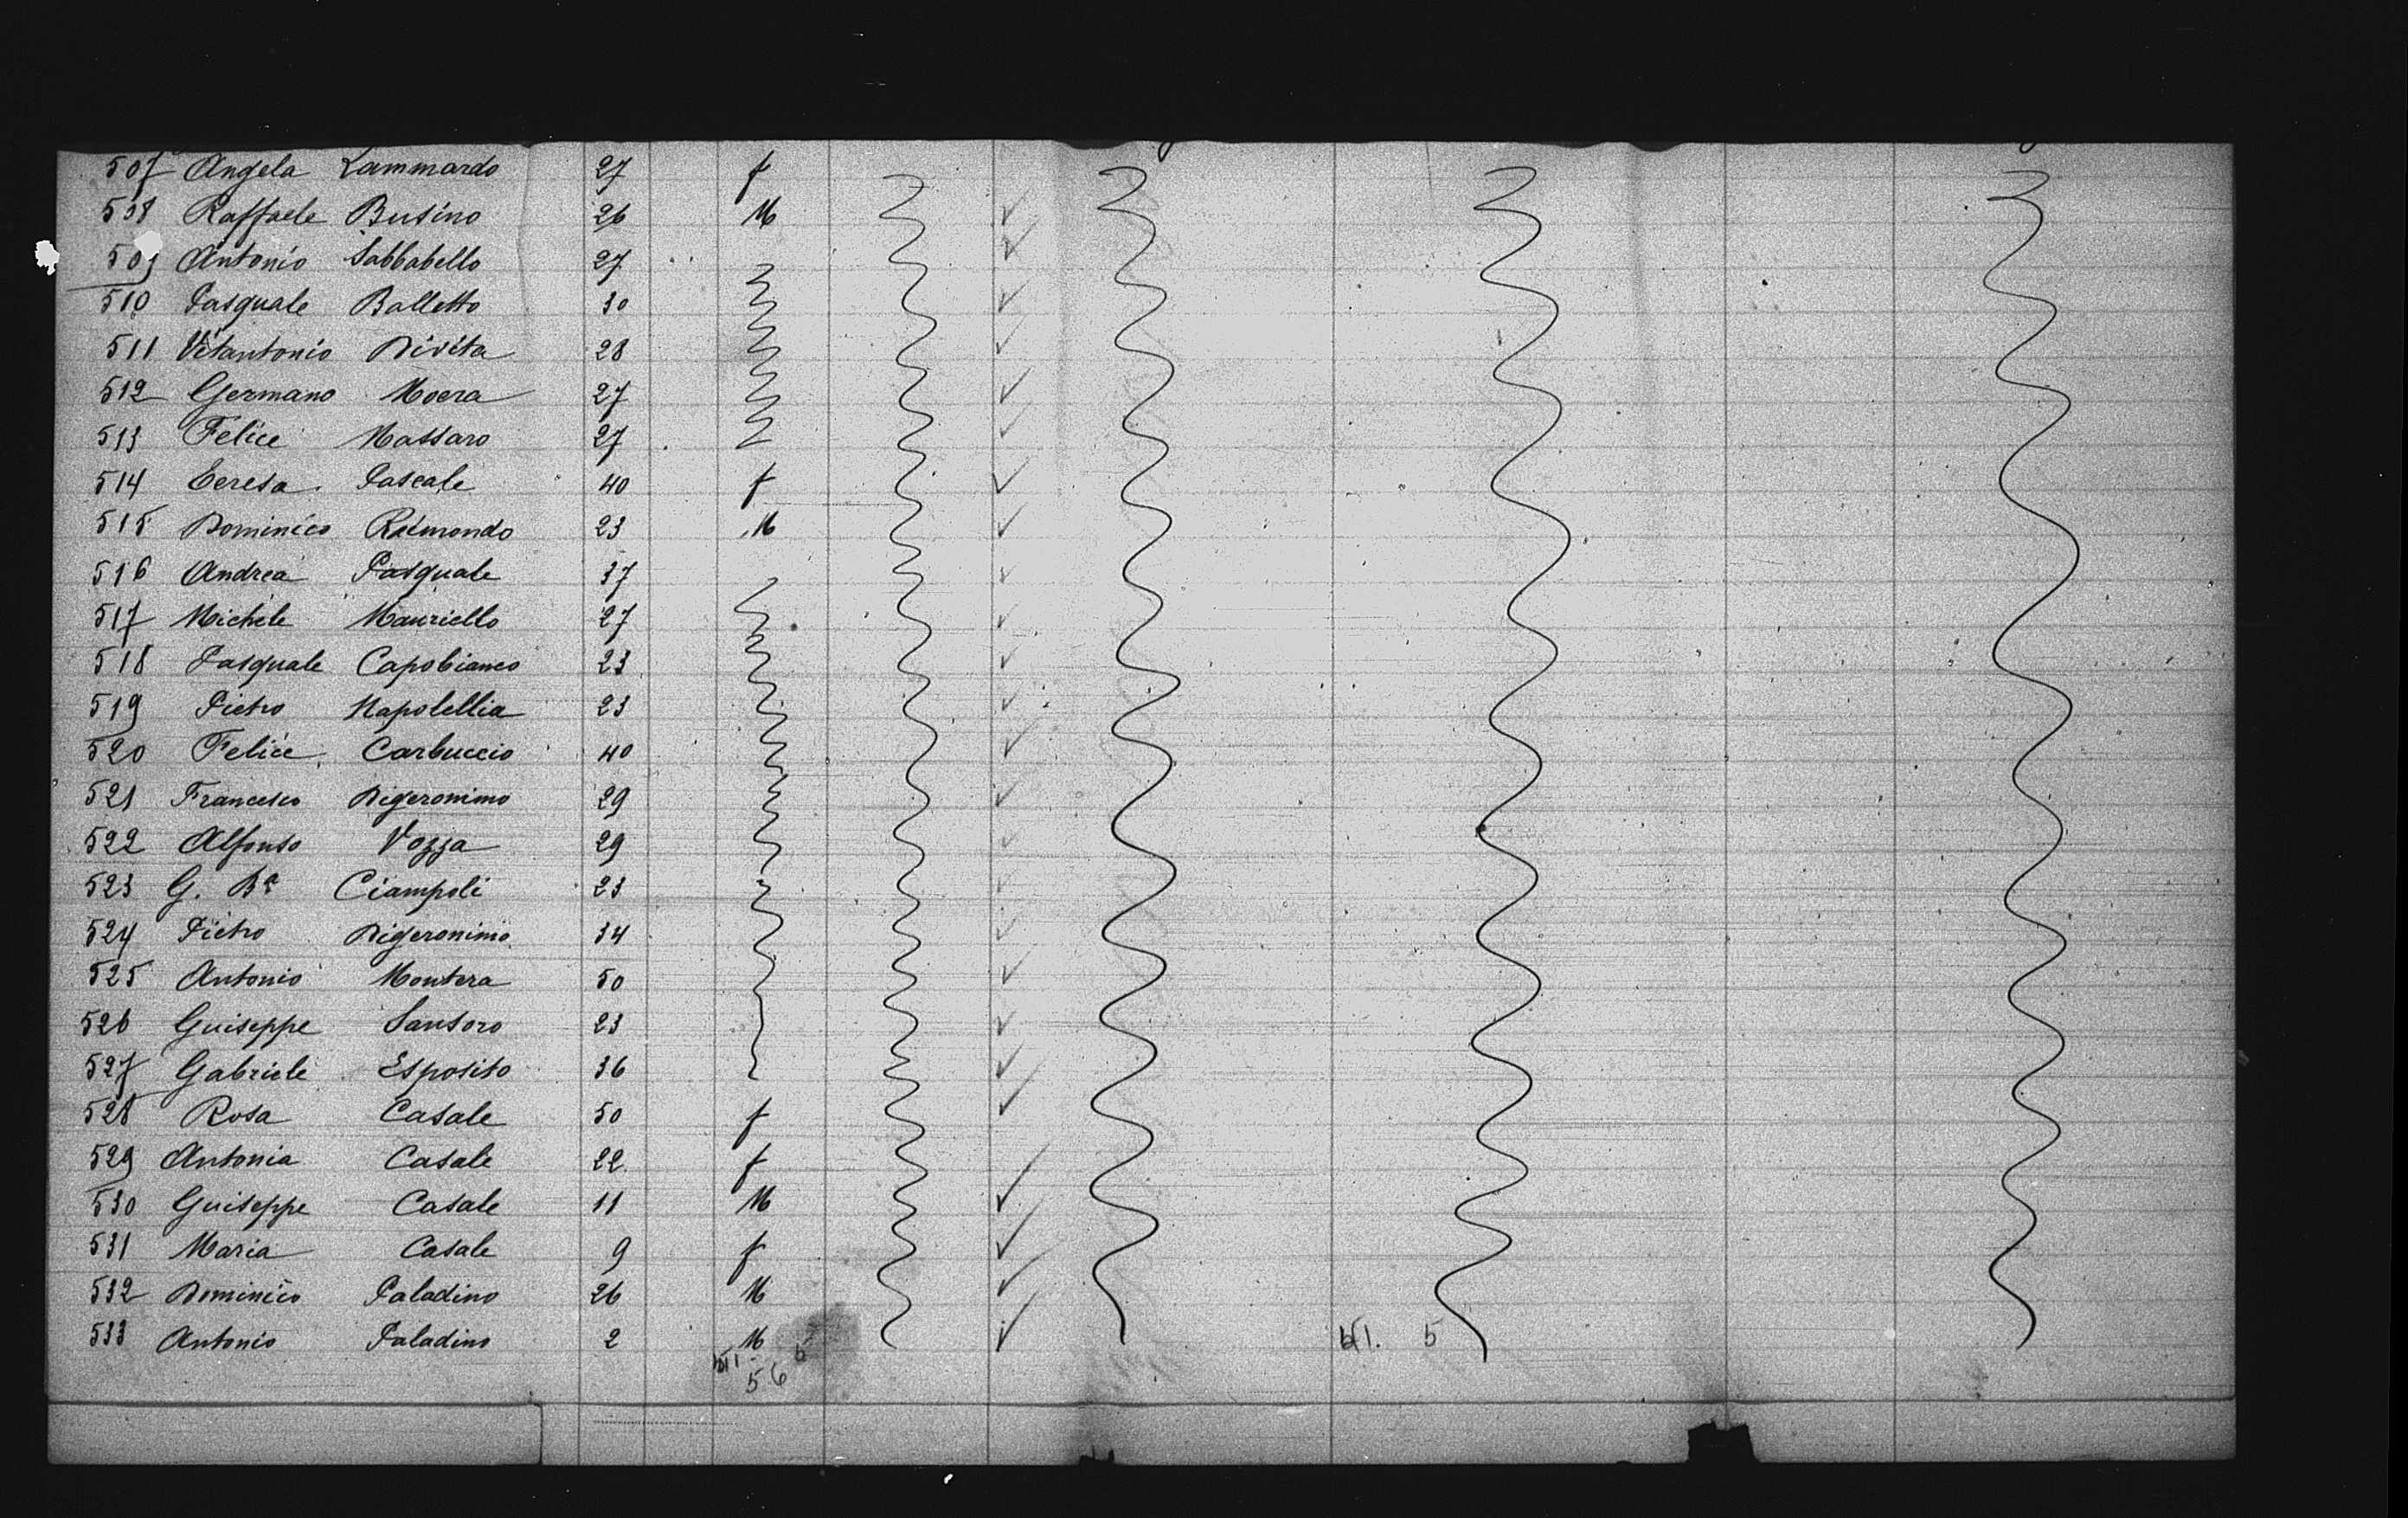 507 Angela Lammardo 27 f
508 Raffaele Busino 26 M
509 Antonio Sabbabello 27
510 Pasquale Balletto 30
511 Vitantonio Divita 28
512 Germano Moera 27
513 Felice Massaro 27
514 Teresa Pascale 40 f
515 Dominico Raimondo 23 M
516 Andrea Pasquale 37
517 Michele Mauriello 27
518 Pasquale Capobianco 23
519 Pietro Napolellia 23
520 Felice Carbuccio 40
521 Francesco Digeronimo 29
522 Alfonso Vozza 29
523 G. Ba Ciampoli 23
524 Pietro Digeronimo 34
525 Antonio Montera 50
526 Guiseppe Sansoro 23
527 Gabriele Esposito 36
528 Rosa Casale 50 f
529 Antonia Casale 22 f
530 Guiseppe Casale 11 M
531 Maria Casale 9 f
532 Dominico Paladino 26 M
533 Antonio Paladino 2 M
5
56